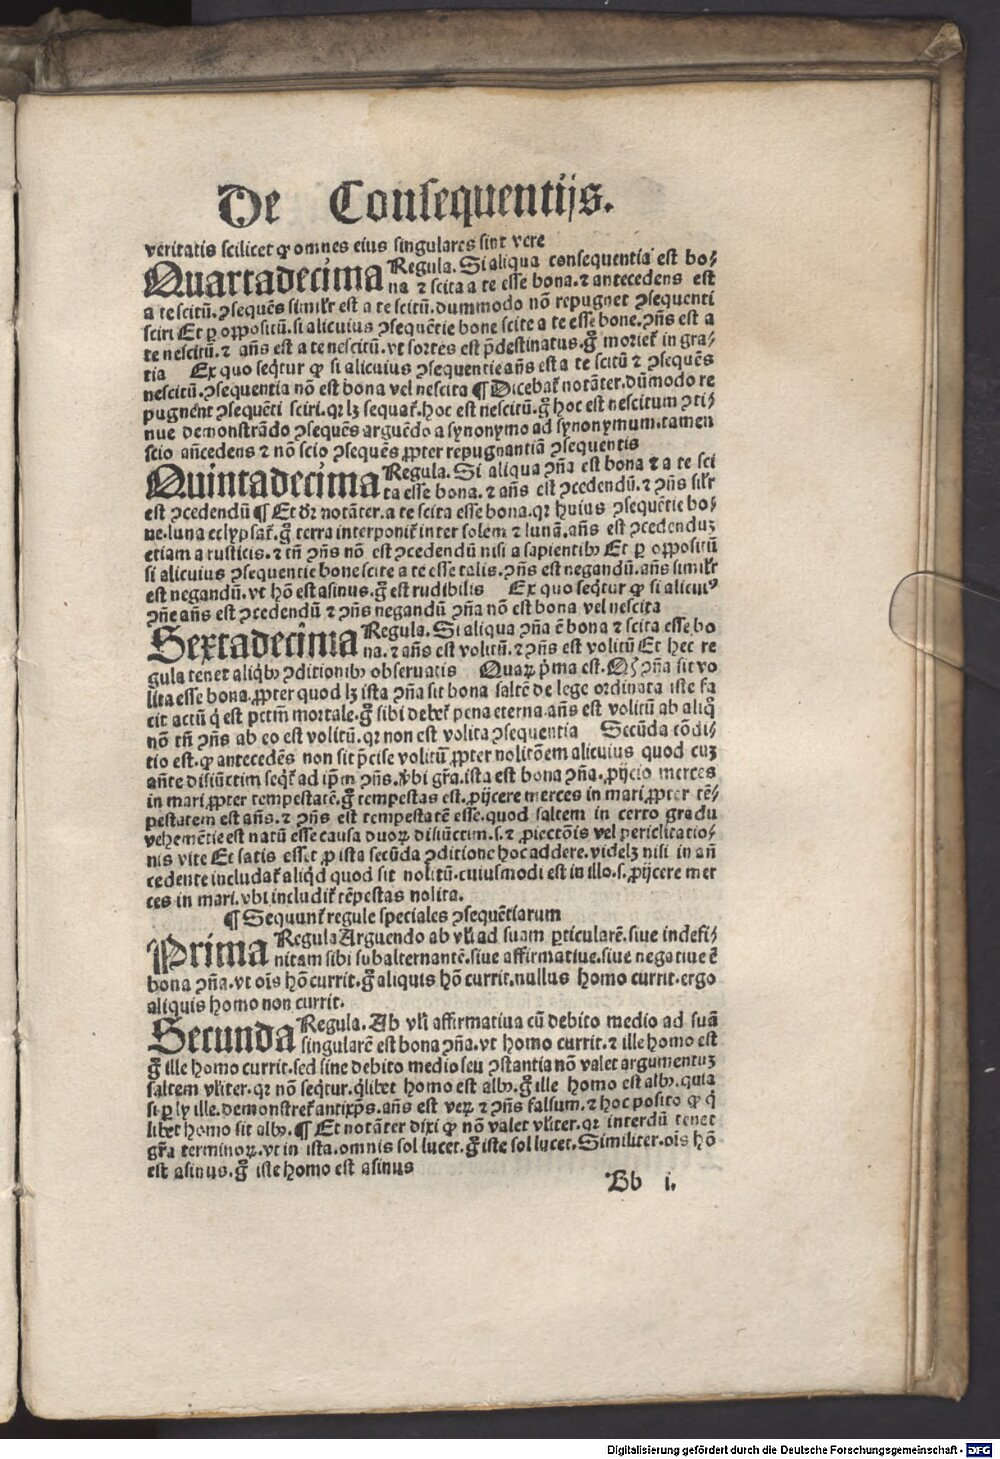 De Consequentijs.
veritatis scilicet ꝙ omnes eius singulares sint vere
Quartadecima Regula. Si aliqua consequentia est bo⸗
na ⁊ scita a te esse bona. ⁊ antecedens est
a te scitũ. ꝯsequẽs simil'r est a te scitũ. dummodo nõ repugnet ꝯsequenti
sciri Et ꝑ oꝓpositũ. si alicuius ꝯsequẽtie bone scite a te esse bone. ꝯñs est a
te nescitũ. ⁊ añs est a te nescitũ. vt sortes est p̄destinatus. g̊ moriet᷑ in gra⸗
tia Ex quo seq̃tur ꝙ si alicuius ꝯsequentie añs est a te scitũ ⁊ ꝯsequẽs
nescitũ. ꝯsequentia nõ est bona vel nescita ¶ Dicebat᷑ notãter. dũmodo re
pugnẽnt ꝯsequẽti sciri. qꝛ lꝫ sequat᷑. hoc est nescitũ. g̊ hoc est nescitum ꝯti⸗
nue demonstrãdo ꝯsequẽs arguẽdo a synonymo ad synonymum. tamen
scio añcedens ⁊ nõ scio ꝯsequẽs ꝓpter repugnantiã ꝯsequentis
Quintadecima Regula. Si aliqua ꝯña est bona ⁊ a te sci
ta esse bona. ⁊ añs est ꝯcedendũ. ⁊ ꝯñs sil'r
est ꝯcedendũ ¶ Et dr̃ notãter. a te scita esse bona. qꝛ huius ꝯsequẽtie bo⸗
ne. luna eclypsat᷑. g̊ terra interponit᷑ inter solem ⁊ lunã. añs est ꝯcedenduꝫ
etiam a rusticis. ⁊ tñ ꝯñs nõ est ꝯcedendũ nisi a sapientibꝰ Et ꝑ oꝓpositũ
si alicuius ꝯsequentie bone scite a te esse talis. ꝯñs est negandũ. añs simil'r
est negandũ. vt hõ est asinus. g̊ est rudibilis Ex quo seq̃tur ꝙ si alicuiꝰ
ꝯñe añs est ꝯcedendũ ⁊ ꝯñs negandũ ꝯña nõ est bona vel nescita
Sextadecima Regula. Si aliqua ꝯña ẽ bona ⁊ scita esse bo
na. ⁊ añs est volitũ. ⁊ ꝯñs est volitũ Et hec re
gula tenet aliq̃bꝰ ꝯditionibꝰ obseruatis Quaꝝ p̃ma est. Qꝫ ꝯña sit vo
lita esse bona. ꝓpter quod lꝫ ista ꝯña sit bona saltẽ de lege ordinata iste fa
cit actũ q̃ est pctm̃ mortale. g̊ sibi debet᷑ pena eterna. añs est volitũ ab aliq̊
nõ tñ ꝯñs ab eo est volitũ. qꝛ non est volita ꝯsequentia Secũda cõdi⸗
tio est. ꝙ antecedẽs non sit p̃cise volitũ ꝓpter nolitõem alicuius quod cuꝫ
añte disiũctim seq̃t᷑ ad ip̃m ꝯñs. vbi gr̃a. ista est bona ꝯña. ꝓijcio merces
in mari ꝓpter tempestatẽ. g̊ tempestas est. ꝓijcere merces in mari ꝓpter tẽ⸗
pestatem est añs. ⁊ ꝯñs est tempestatẽ esse. quod saltem in certo gradu
vehemẽtie est natũ esse causa duoꝝ disiũctim. s. ⁊ ꝓiectõis vel periclitatio⸗
nis vite Et satis esset ꝓ ista secũda ꝯditione hoc addere. videlꝫ nisi in añ
cedente includat᷑ aliq̃d quod sit nolitũ. cuiusmodi est in illo. s. ꝓijcere mer
ces in mari. vbi includit᷑ tẽpestas nolita.
¶ Sequunt᷑ regule speciales ꝯsequẽtiarum
Prima Regula Arguendo ab vl'i ad suam ꝑticularẽ. siue indefi⸗
nitam sibi subalternantẽ. siue affirmatiue. siue negatiue ẽ
bona ꝯña. vt ois̃ hõ currit. g̊ aliquis hõ currit. nullus homo currit. ergo
aliquis homo non currit.
Secunda Regula. Ab vl'i affirmatiua cũ debito medio ad suã
singularẽ est bona ꝯña. vt homo currit. ⁊ ille homo est
g̊ ille homo currit. sed sine debito medio seu ꝯstantia nõ valet argumentuꝫ
saltem vl'iter. qꝛ nõ seq̃tur. q̃libet homo est albꝰ. g̊ ille homo est albꝰ. quia
si ꝑ ly ille. demonstret᷑ antixp̃s. añs est veꝝ ⁊ ꝯñs falsum. ⁊ hoc posito ꝙ q̃
libet homo sit albꝰ. ¶ Et notãter dixi ꝙ nõ valet vl'iter. qꝛ interdũ tenet
gr̃a terminoꝝ. vt in ista. omnis sol lucet. g̊ iste sol lucet. Similiter. ois̃ hõ
est asinus. g̊ iste homo est asinus
Bb i.
Digitalisierung gefördert durch die Deutsche Forschungsgemeinschaft - DFG